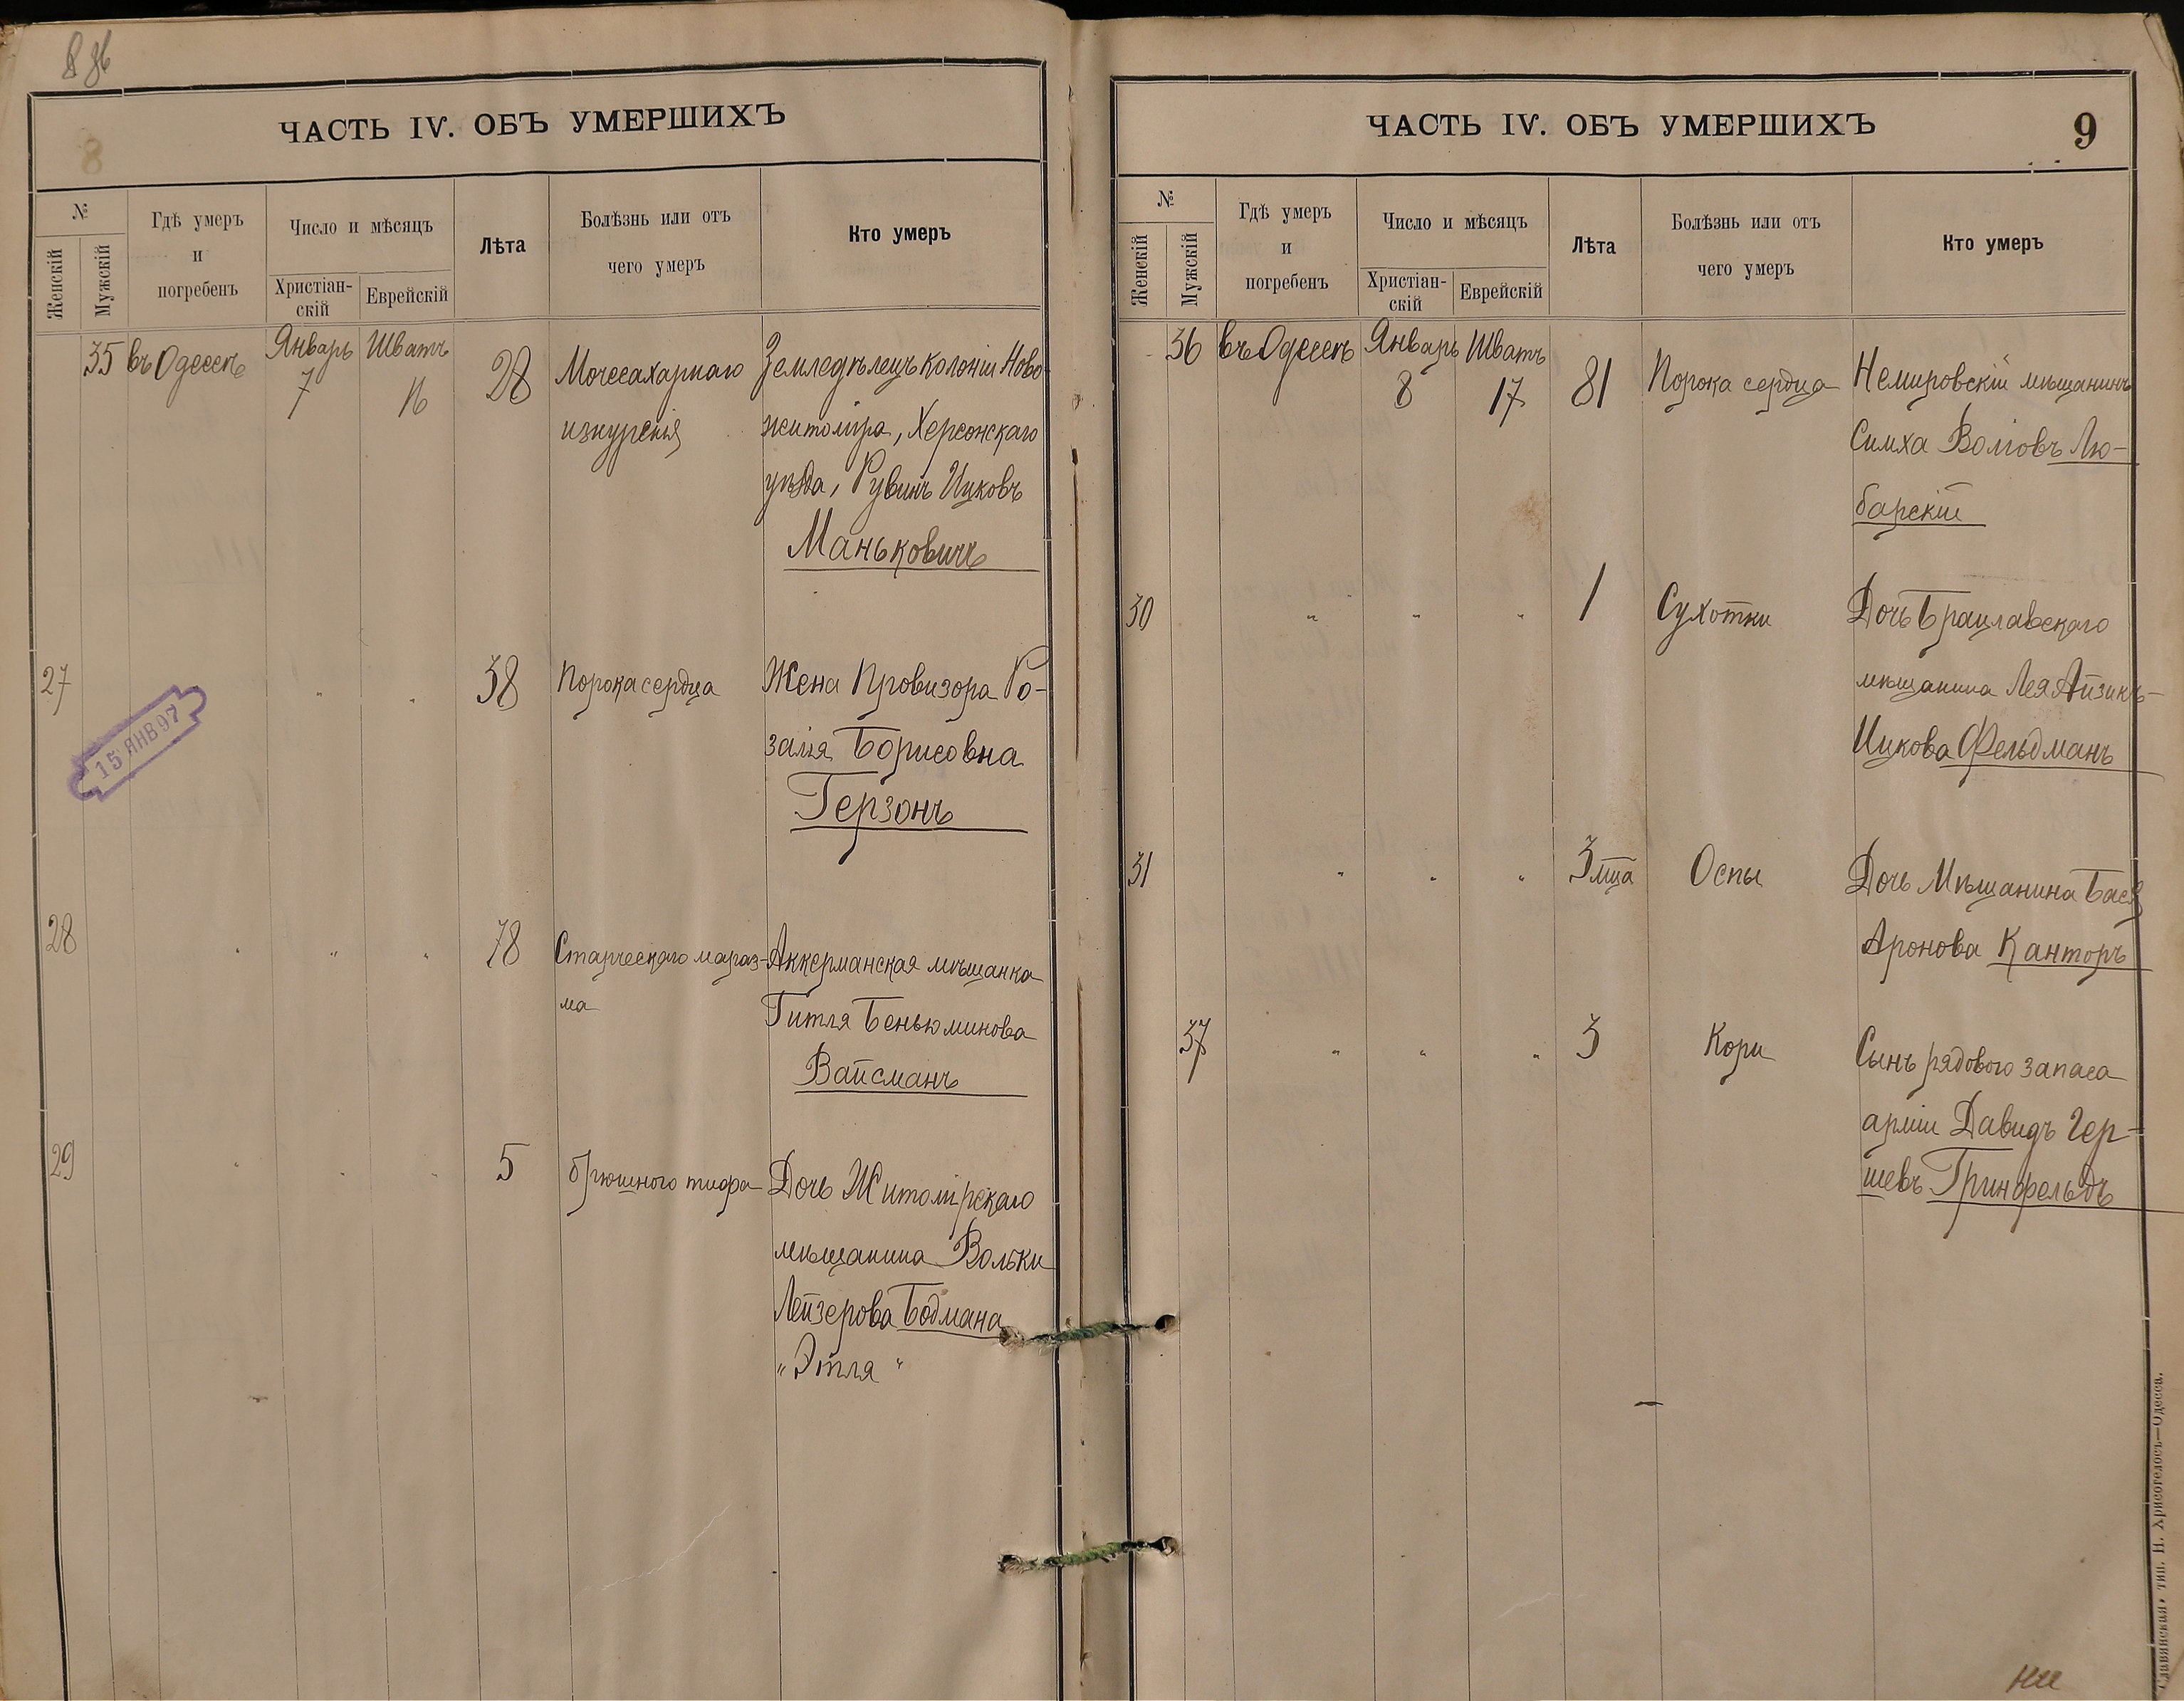 8 об
8
ЧАСТЬ IV. ОБЪ УМЕРШИХЪ
№
Женскій
Мужскій
Гдѣ умеръ
и
погребенъ
Число и мѣсяцъ
Христіан-
скій
Еврейскій
Лѣта
Болѣзнь или отъ
чего умеръ
Кто умеръ
35 въ Одессѣ Январь 7 Шватъ 16 28
Мочесахарнаго
изнуренія
Земледѣлецъ колоніи Ново-
житоміра, Херсонскаго
уѣзда, Рувинъ Ицковъ
Маньковичъ
27 " " 38 Порока сердца
Жена Провизора Ро-
залія Борисовна
Герзонъ
15 ЯНВ 97
28 " " " 78 Старческаго мараз-
ма
Аккерманская мѣщанка
Гитля Беньюминова
Вайсманъ
29 " " " 5 брюшного тифа
Дочь Житомірскаго
мѣщанина Вольки
Лейзерова Бодмана
"Этля"
ЧАСТЬ IV. ОБЪ УМЕРШИХЪ
9
№
Женскій
Мужскій
Гдѣ умеръ
и
погребенъ
Число и мѣсяцъ
Христіан-
скій
Еврейскій
Лѣта
Болѣзнь или отъ
чего умеръ
Кто умеръ
36 въ Одессѣ Январь 8 Шватъ 17 81 Порока сердца
Немировскій мѣщанинъ
Симха Волховъ Лю-
барскій
30 " " " 1 Сухотки
Дочь Брацлавскаго
мѣщанина Лея Айзикъ-
Ицкова Фельдманъ
31 " " " 3 мца Оспы
Дочь Мѣщанина Бася
Аронова Канторъ
37 " " " 3 Кори
Сынъ рядового запаса
арміи Давидъ Гер-
шевъ Гринфельдъ
«Славянская» тип. Н. Хрисогелосъ—Одесса.